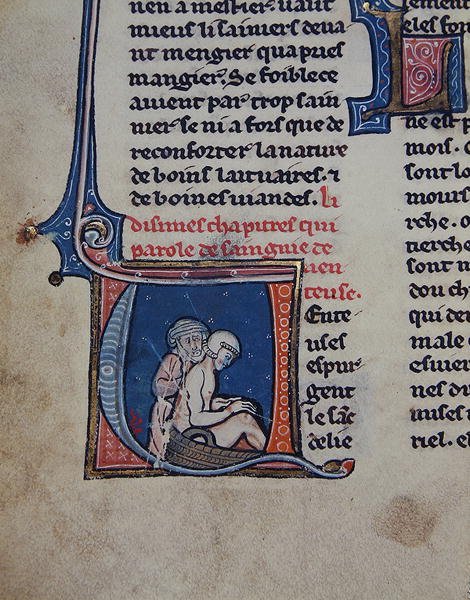 nen a mestier vaut
mieus li sainiers deua
nt mengier qua pries
mangier. Se foiblece
auient par trop sain
nier se ni a fors que de
reconforter la nature
de boins laituaires. ⁊
de boines uiandes. li
disimes chapitres qui
parole de sainguie de
uen
teuse.
Uente
uses
espur
gent
le sāc
delie
ne est p
mois. C
sont lo
mours
rche. o
tierche
sont m
dou ch
qui de
male
esuier
nes du
uuses
riel. e